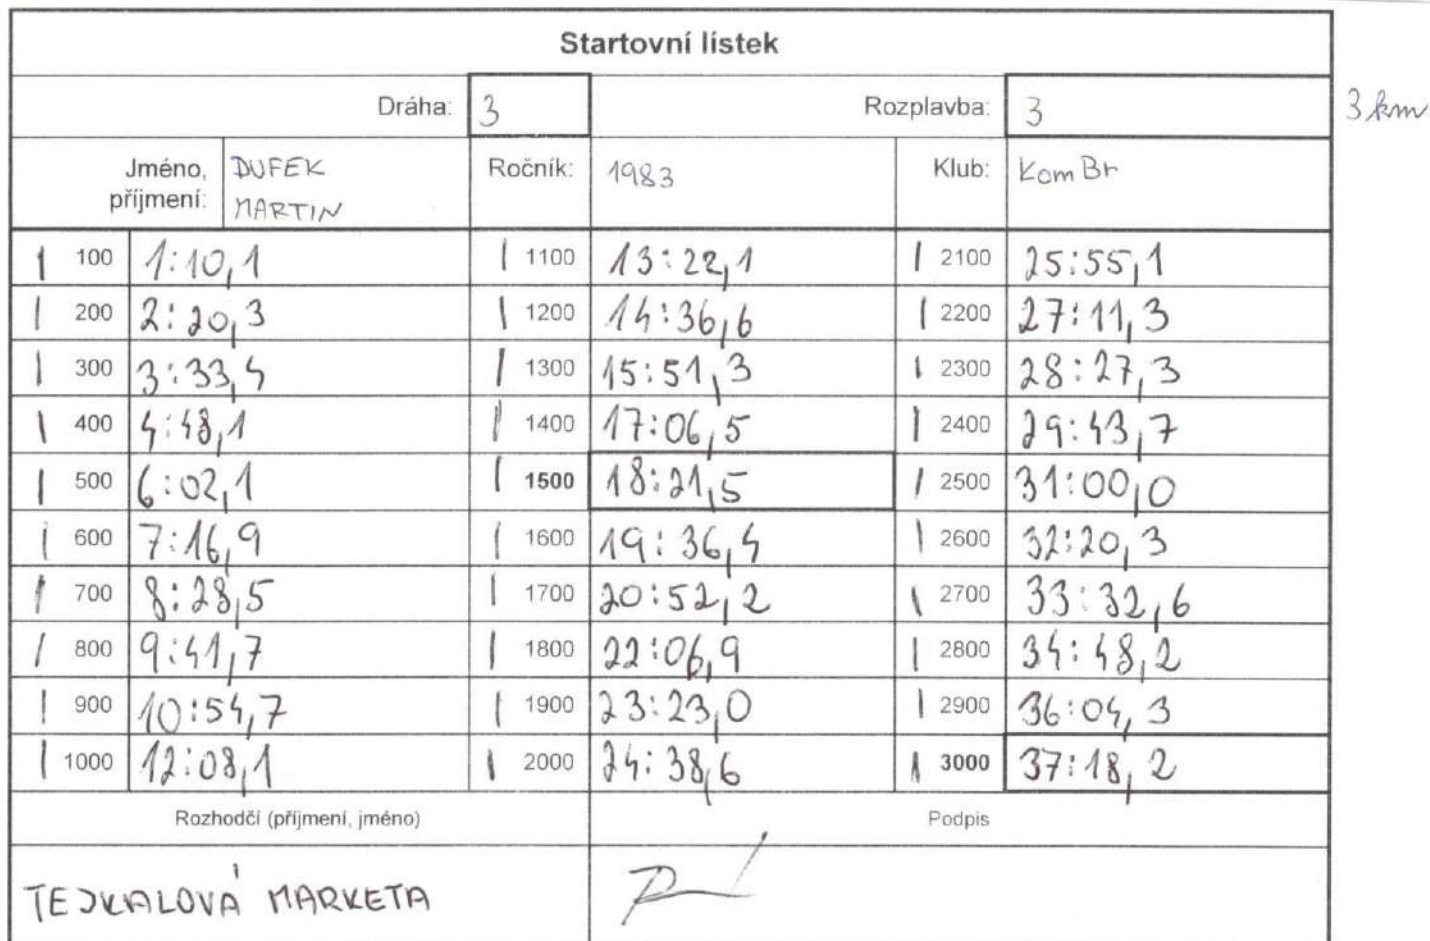 Startovní lístek
Dráha: 3 Rozplavba: 3 3 km
Jméno, příjmení: DUFEK MARTIN Ročník: 1983 Klub: KomBr
| 100 1:10,1 | 1100 13:22,1 | 2100 25:55,1
| 200 2:20,3 | 1200 14:36,6 | 2200 27:11,3
| 300 3:33,4 | 1300 15:51,3 | 2300 28:27,3
| 400 4:48,1 | 1400 17:06,5 | 2400 29:43,7
| 500 6:02,1 | 1500 18:21,5 | 2500 31:00,0
| 600 7:16,9 | 1600 19:36,4 | 2600 32:20,3
| 700 8:28,5 | 1700 20:52,2 | 2700 33:32,6
| 800 9:41,7 | 1800 22:06,9 | 2800 34:48,2
| 900 10:54,7 | 1900 23:23,0 | 2900 36:04,3
| 1000 12:08,1 | 2000 24:38,6 | 3000 37:18,2
Rozhodčí (příjmení, jméno) Podpis
TEJKALOVÁ MARKETA